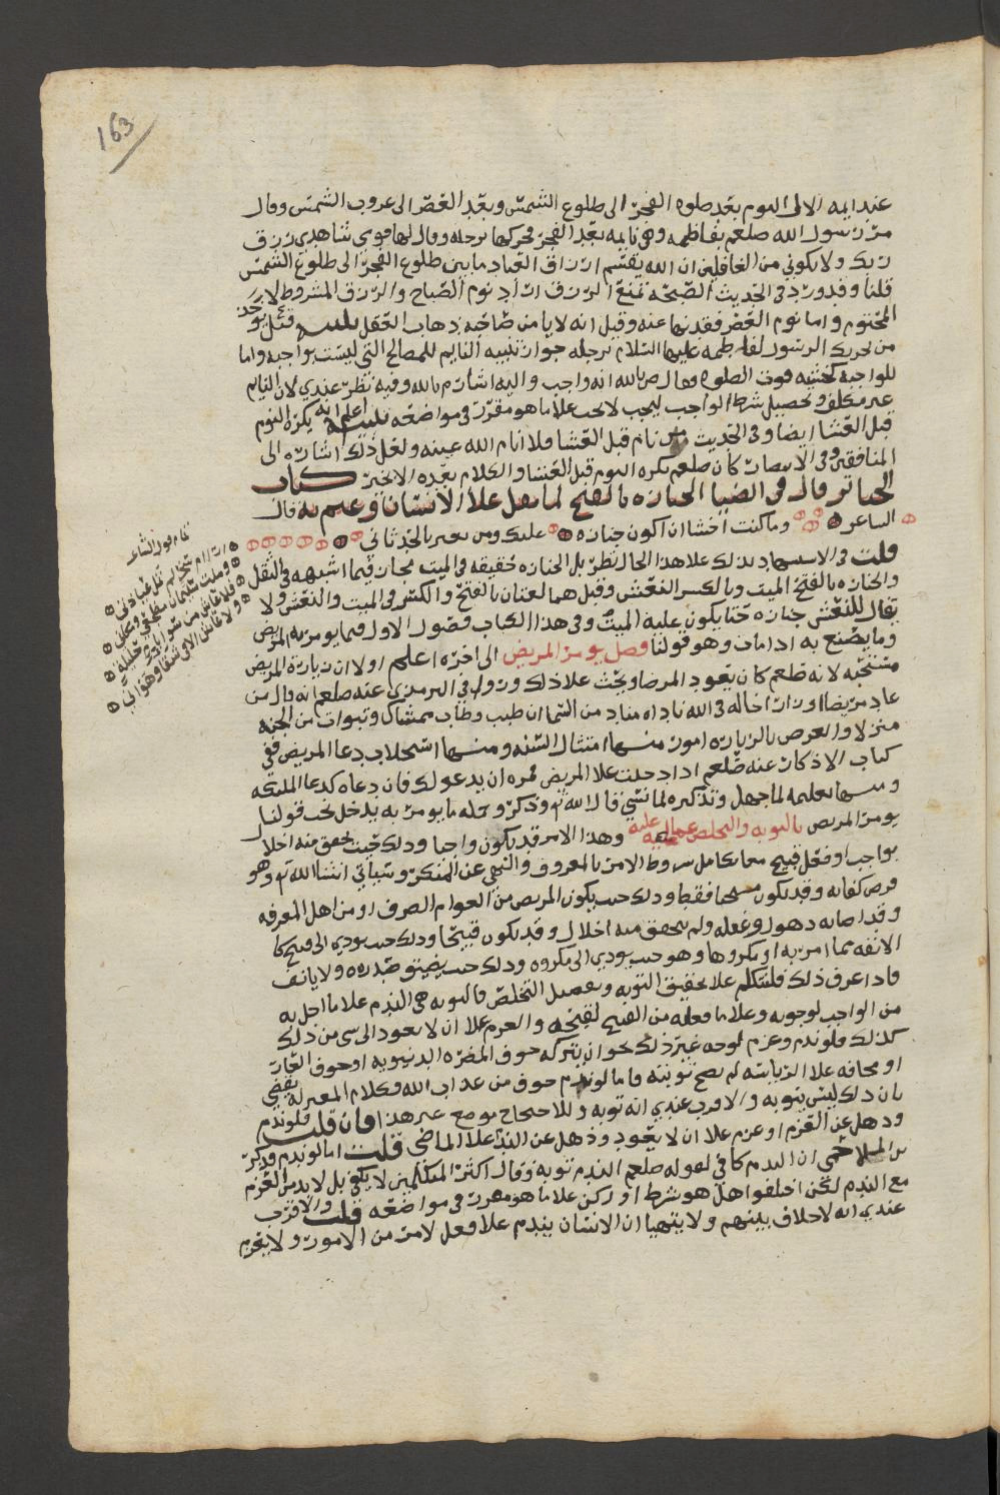 163
عند الله الا النوم بعد صلوه الفجر الى طلوع الشمس وبعد العصر الى غروب الشمس وقال
مر رسول الله صلعم بفاطمه وهي نايمه بعد الفجر فحركها برجله وقال لها قومي شاهدي رزق
ربك ولا تكوني من الغافلين ان الله يقسم ارزاق العباد ما بين طلوع الفجر الى طلوع الشمس
قلنا وقد ورد في الحديث الصبحه تمنع الرزق اراد نوم الصباح والرزق المشروط لا
المختوم واما نوم العصر فقد نها عنه وقيل انه لا يامن صاحبه ذهاب العقل تنبيه قيل يوخذ
من تحريك الرسول لفاطمه عليها السلام برجله جواز تنبيه النايم للمصالح التي ليست بواجبه واما
للواجبه كخشيه فوت الصلوه فقال ص بالله انه واجب واليه اشار م بالله وفيه نظر عندي لان النايم
غير مكلف وتحصيل شرط الواجب ليجب لا يجب علا ما هو مقرر في مواضعه تنبيه اعلم انه يكره النوم
قبل العشا ايضا وفي الحديث من نام قبل العشا فلا انام الله عينه ولعل ذلك اشاره الى
المنافقين وفي الانتصار كان صلعم يكره النوم قبل العشا والكلام بعده الا بخير كتاب
الجنائز قال في الضيا الجنازه بالفتح لما ثقل علا الانسان وغم به قال
الشاعر وما كنت اخشا ان اكون جنازه عليك ومن يغتر بالحدثاني
قلت في الاستشهاد بذلك علا هذا الحال نظر بل الجنازه حقيقه في الميت مجاز فيما اشبهه في الثقل
والجنازه بالفتح الميت وبالكسر النعش وقيل هما لغتان بالفتح والكسر في الميت والنعش ولا
يقال للنعش جنازه حتا يكون عليه الميت وفي هذا الكتاب فصول الاول فيما يومر به المريض
وما يصنع به اذا مات وهو قولنا فصل يومر المريض الى اخره اعلم اولا ان زيارة المريض
مستحبه لانه صلعم كان يعود المرضا ويحث علا ذلك وروى في الترمذي عنه صلعم انه قال من
عاد مريضا او زار اخا له في الله ناداه مناد من السما ان طبت وطاب ممشاك وتبوات من الجنه
منزلا والغرض بالزياره امور منها امتثال السنه ومنها استجلاب دعا المريض ففي
كتاب الاذكار عنه صلعم اذا دخلت علا المريض فمره ان يدعو لك فان دعاه كدعا الملائكه
ومنها تعليمه لما جهل وتذكيره لما نسي قال الله تع وذكر وجمله ما يومر به يدخل تحت قولنا
يومر المريض بالتوبه والتخلص عما عليه وهذا الامر قد يكون واجبا وذلك حيث تحقق منه اخلا
بواجب او فعل قبيح مع تكامل شروط الامر بالمعروف والنهي عن المنكر وسياتي انشا الله تع وهو
فرض كفايه وقد يكون مستحبا فقط وذلك حيث يكون المريض من العوام الصرف او من اهل المعرفه
وقد اصابه ذهول وغفله ولم يتحقق منه اخلال وقد يكون قبيحا وذلك حيث يودي الى قبيح كا
الانفه مما امر به او مكروها وهو حيث يودي الى مكروه وذلك حيث يضيق صدره ولا يانف
فاذا عرف ذلك فلنتكلم علا تحقيق التوبه وتفصيل التخلص فالتوبه هي الندم علا ما اخل به
من الواجب لوجوبه وعلا ما فعله من القبيح لقبحه والعزم علا ان لا يعود الى شي من ذلك
كذلك فلو ندم وعزم لوجه غير ذلك نحو ان يتركه خوف المضره الدنيويه او خوف العار
او محافه علا الرياسه لم يصح توبته فاما لو ندم خوف من عذاب الله فكلام المعتزله يقضي
بان ذلك ليس بتوبه والاقرب عندي انه توبه وللاحتجاج موضع غير هذا فان قلت فلو ندم
وذهل عن العزم او عزم علا ان لا يعود وذهل عن الندم علا الماضي قلت اما لو ندم فذكر
بن الملاحمي ان الندم كافي لقوله صلعم الندم توبه وقال اكثر المتكلمين لا يكفي بل لا بد من العزم
مع الندم لكن اختلفوا هل هو شرط او ركن علا ما هو مقرر في مواضعه قلت والاقرب
عندي انه لا خلاف بينهم ولا يتهيا ان الانسان يندم علا فعل لامر من الامور ولا يعزم
تمام قول الشاعر